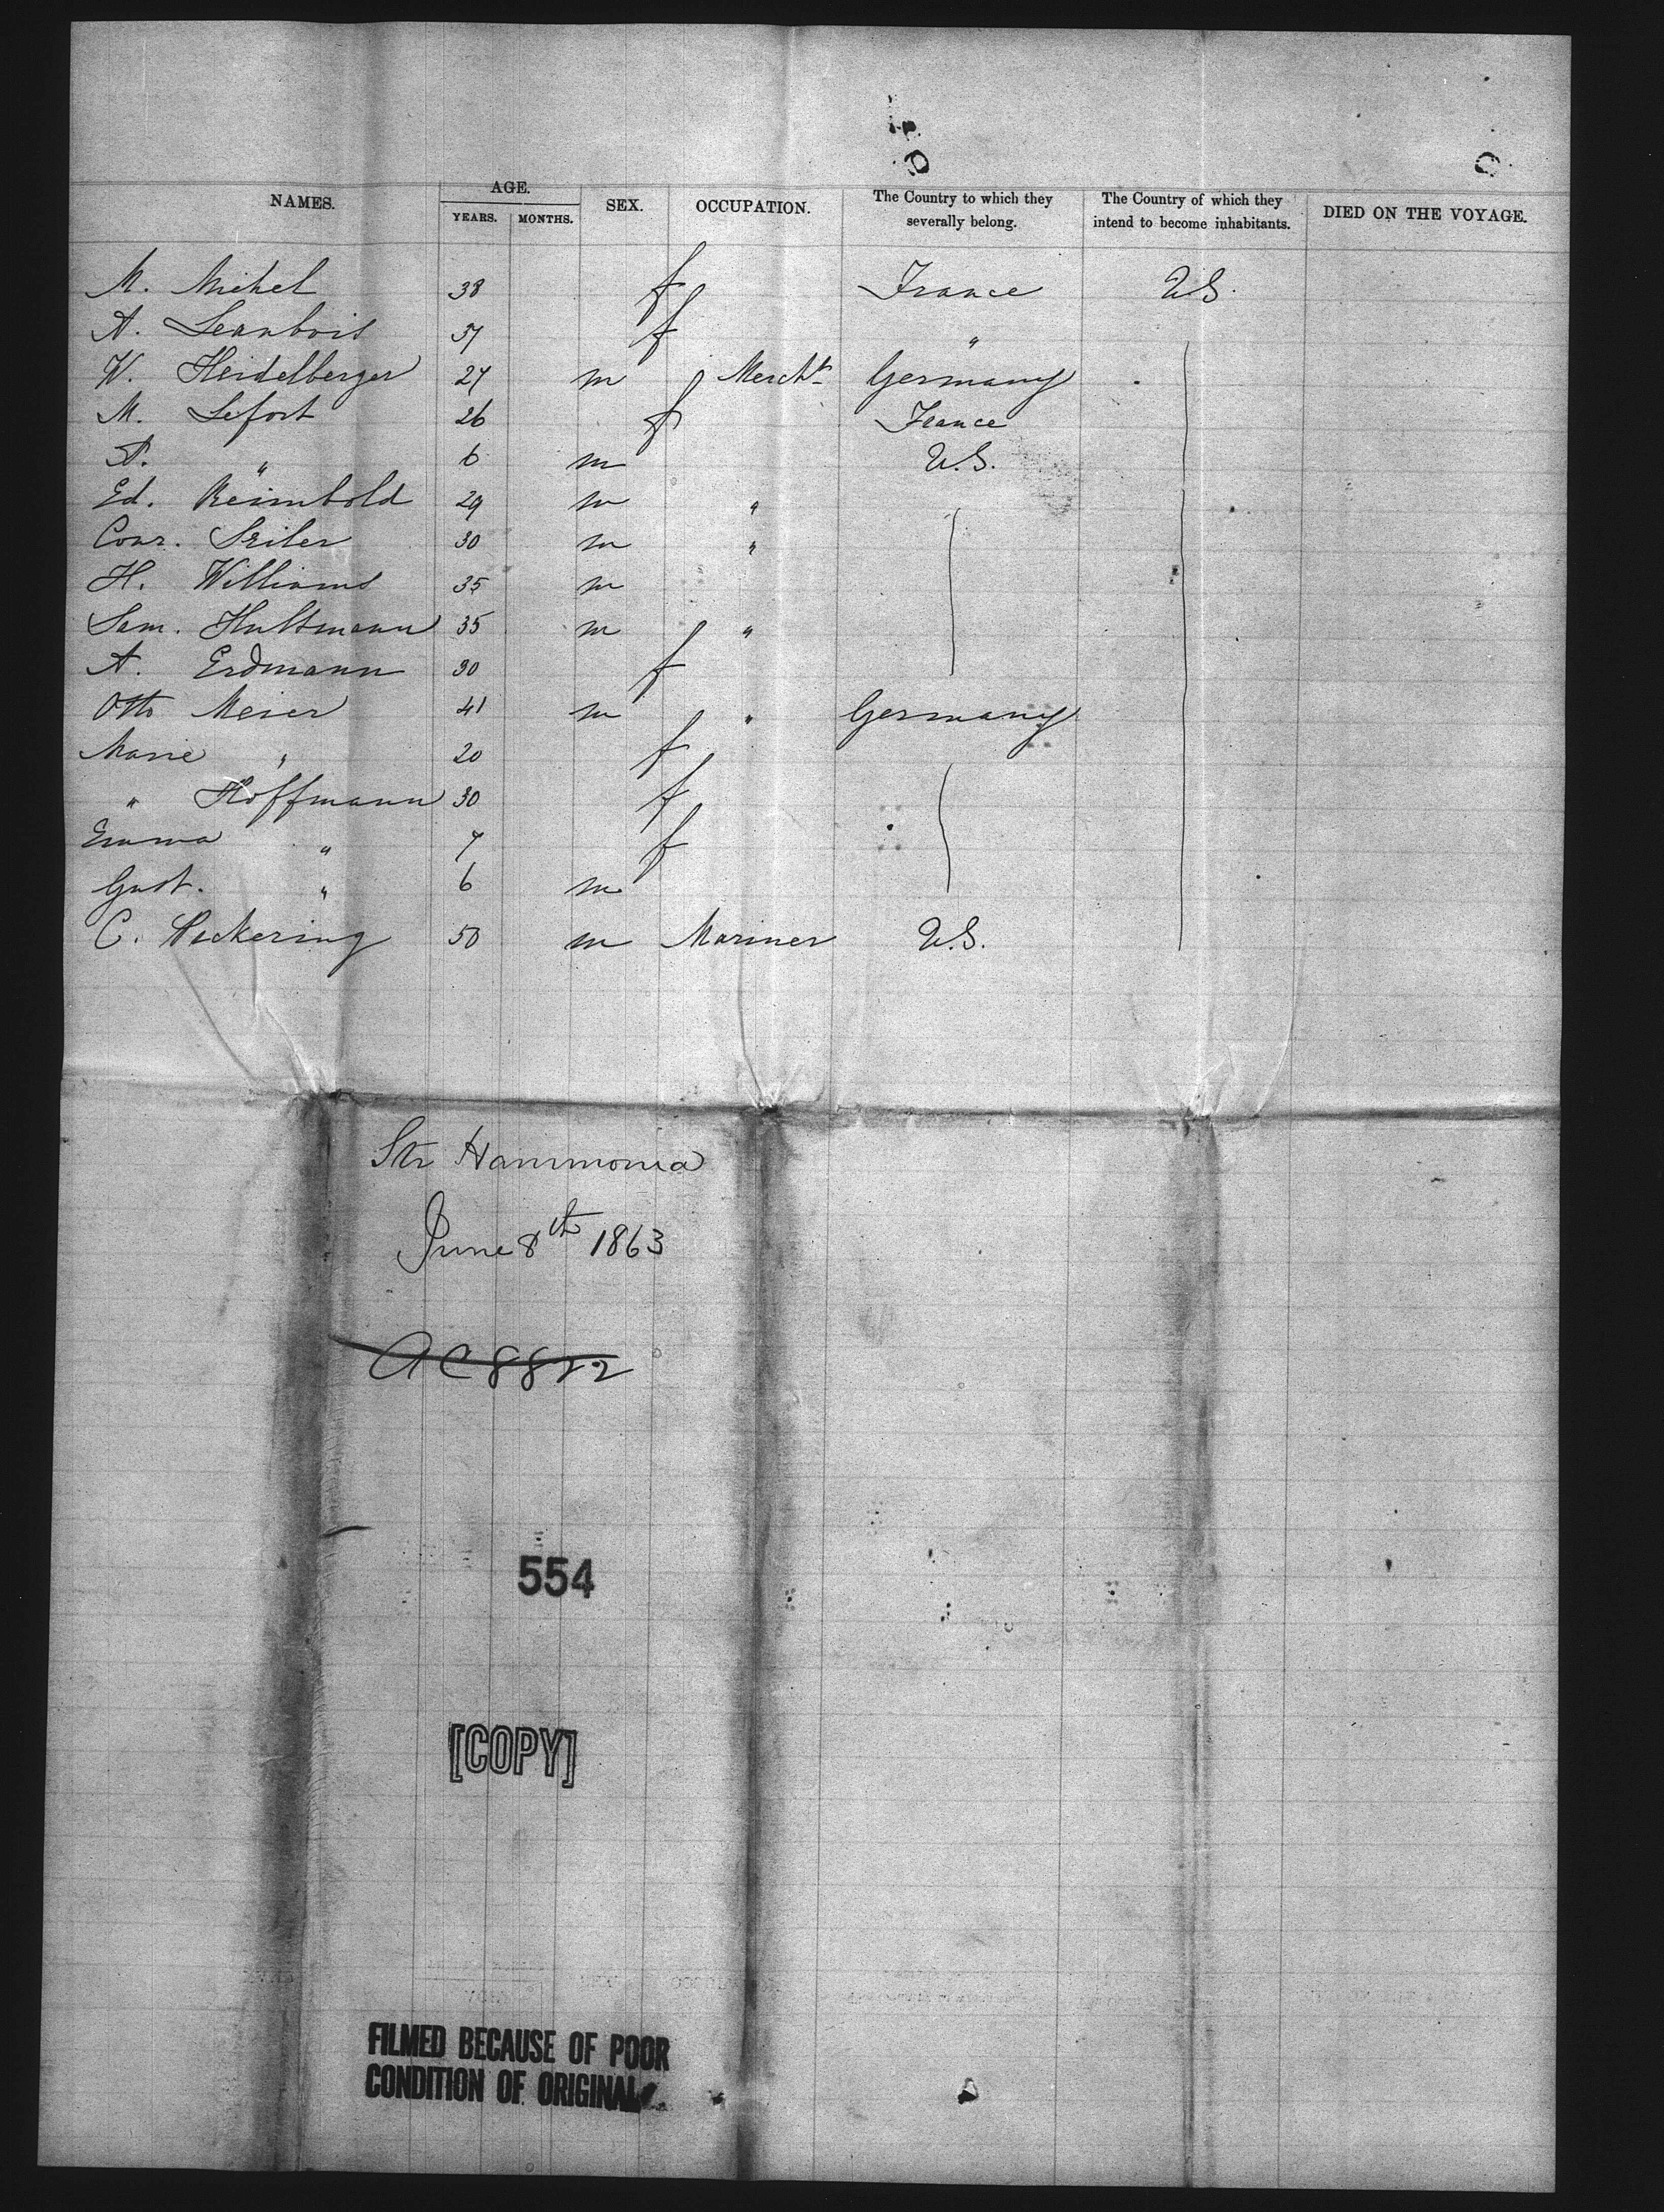 NAMES. AGE. YEARS. MONTHS. SEX. OCCUPATION. The Country to which they severally belong. The Country of which they intend to become inhabitants. DIED ON THE VOYAGE.
M. Michel 38 f France U.S.
A. 37 f "
W. Heidelberger 27 m Mercht Germany
M. Lefort 26 f France
A. " 6 m U.S.
Ed. Reimbold 29 m "
Conr. Seiler 30 m "
H. Williams 35 m
Sam. Hultmann 35 m "
A. Erdmann 30 f
Otto Meier 41 m " Germany
Marie " 20 f
" Hoffmann 30 f
Emma " 7 f
Gust. " 6 m
C. Pickering 50 m Mariner U.S.
Str Hammonia
June 8th 1863
AC 8822
554
[COPY]
FILMED BECAUSE OF POOR
CONDITION OF ORIGINAL